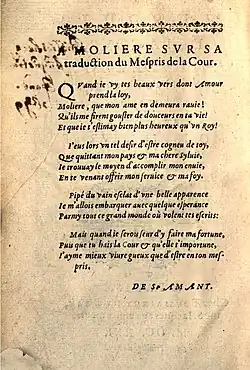 A MOLIERE SVR SA
traduction du Mespris de la Cour.
QVand ie vy tes beaux vers dont Amour
prend la loy,
Moliere, que mon ame en demeura rauie!
Qu'ils me firent gouster de douceurs en ta vie!
Et que ie t'estimay bien plus heureux qu'vn Roy!
I'eus lors vn tel desir d'estre cogneu de toy,
Que quittant mon pays & ma chere Syluie,
Ie trouuay le moyen d'accomplir mon enuie,
En te venant offrir mon seruice & ma foy.
Pipé du vain esclat d'vne belle apparence
Ie m'allois embarquer auec quelque esperance
Parmy tout ce grand monde où volent tes escrits:
Mais quand ie serou seur d'y faire ma fortune,
Puis que tu hais la Cour & qu'elle t'importune,
I'ayme mieux viure gueux que d'estre en ton mes-
pris.
DE St AMANT.